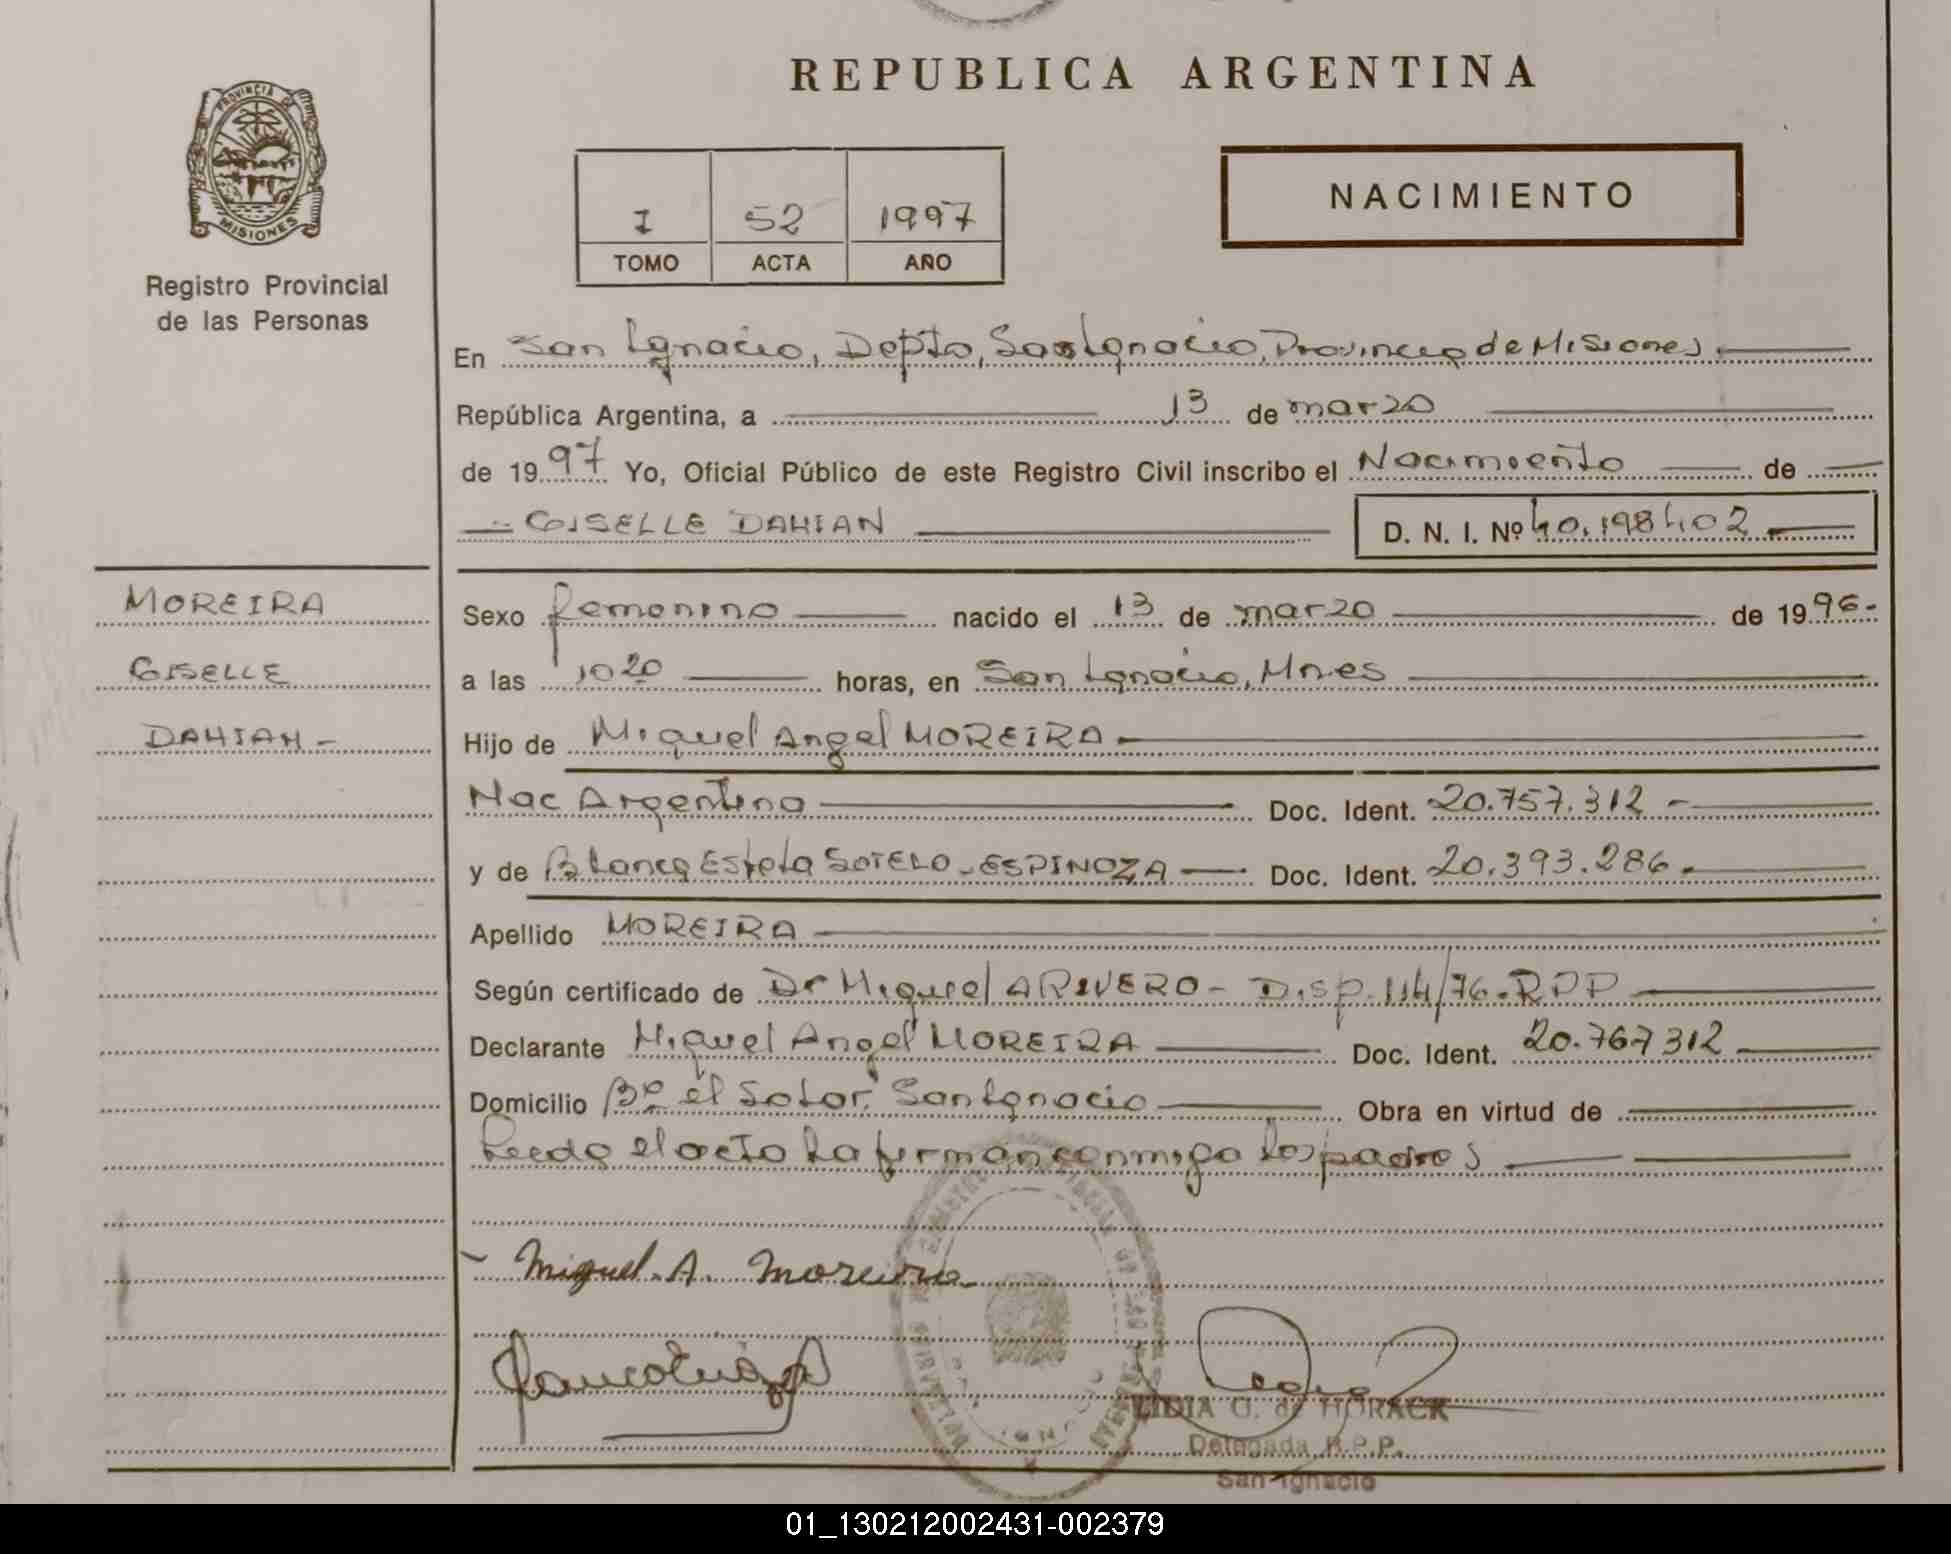 REPUBLICA ARGENTINA
PROVINCIA DE
MISIONES
Registro Provincial
de las Personas
NACIMIENTO
I 52 1997
TOMO ACTA AÑO
En San Ignacio, Depto, San Ignacio, Provincia de Misiones
República Argentina, a 13 de marzo
de 1997 Yo, Oficial Público de este Registro Civil inscribo el Nacimiento de
GISELLE DAHIAN D. N. I. Nº 40.198402
MOREIRA
GISELLE
DAHIAN -
Sexo femenino nacido el 13 de marzo de 1996-
a las 10 20 horas, en San Ignacio, Mnes
Hijo de Miguel Angel MOREIRA
Nac Argentina Doc. Ident. 20.757.312 -
y de Blanca Estela SOTELO - ESPINOZA Doc. Ident. 20.393.286.
Apellido MOREIRA
Según certificado de Dr Miguel A RIVERO - Disp. 114/76. RPP
Declarante Miguel Angel MOREIRA Doc. Ident. 20.767312
Domicilio Bº el Solar San Ignacio Obra en virtud de
Leeda el acta la firman conmigo los padres
Miguel. A. Moreira
LIDIA G. de HORACK
Delegada R.P.P.
San Ignacio
01_130212002431-002379